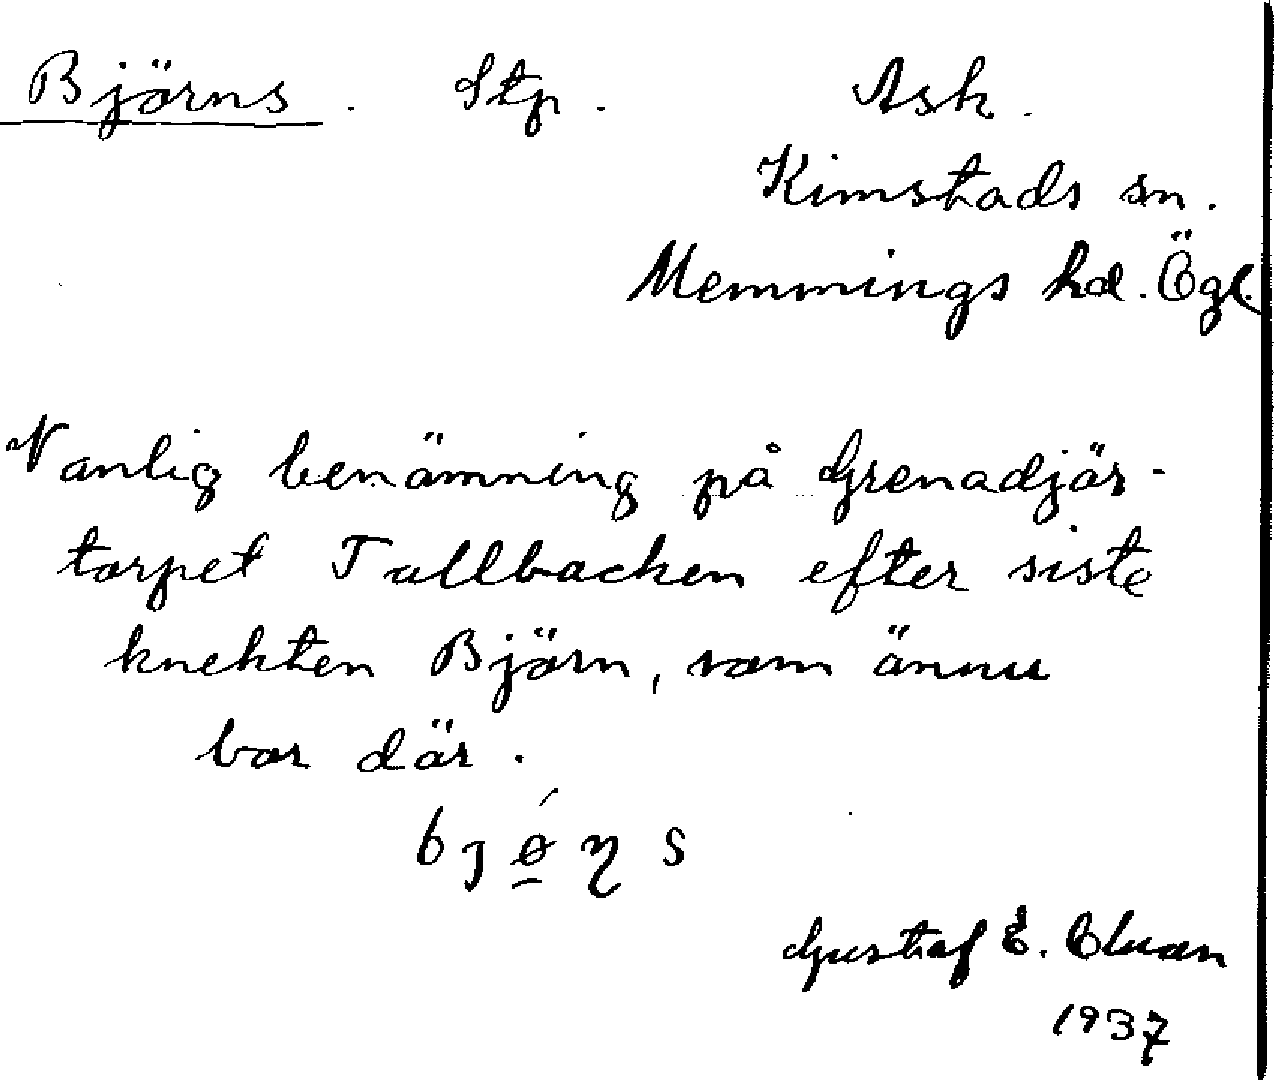 Björns. Stp. Ask.
Kimstads sn.
Memmings hd. Ögl.
Vanlig benämning på Grenadjär-
torpet Tallbacken efter siste
knekten Björn, som ännu
bor där.
Gustaf E.
1937